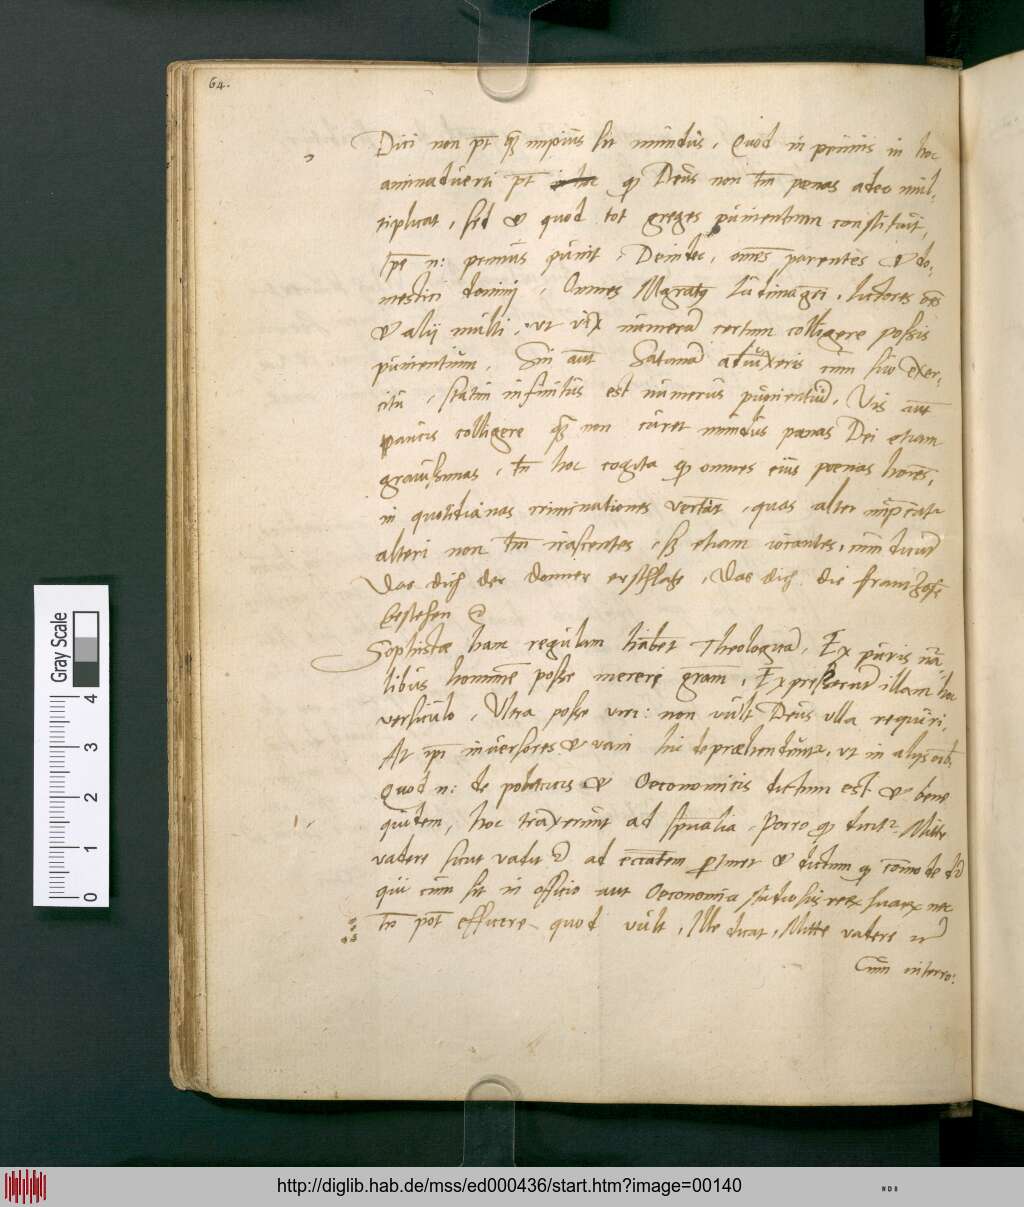 64.
Dici non pt quã impius sit mundus, Quod in primis in hoc
animadverti pt in hoc qp Deus non tm poenas adeo mul-
tiplicat, sed & quod tot greges punientium constituit,
Ipse n: primus punit, Deinde, omnes parentes & do-
mestici domini, Omnes Magratq Ludimagri, lictores oẽs
& alij multi, ut vix numerũ certum colligere possis
punientium, Sin aut Satanã adiũxeris cum suo exer-
citu, statim infinitus est numerus punientiũ, Vis aũt
paucis colligere quã non curet mundus poenas Dei etiam
grauissimas, tñ hoc cogita qp omnes eius poenas hoĩes
in quotidianas criminationes vertãt, quas alter imp̃cat
alteri non tm irascentes, sẽ etiam iocantes, cum dicũt
Das dich der donner erschlahe, Das dich die frantzose
bestehen
Sophistæ hanc regulam habẽt Theologicã, Ex puris nã
libus hominẽ posse mereri grãm, Expresserũt illam hoc
versiculo, Ultra posse viri: non vult Deus ulla requiri.
At ipsi inversores & vani hic depræhenduntur, ut in alijs oĩb.
Quod n: de politicis & Oeconomicis dictum est & bene
quidem, hoc traxerunt ad spũalia, Porro qp dicit Mitte
vadere sicut vadit ad eccãtem ptinet & dictum qp com̃ode
qui cum sit in officio aut Oeconomia studiosus rerũ suarũ nec
tñ põt efficere quod vult, Ille dicat, Mitte vadere
Cum interro:
Gray Scale
4
3
2
1
0
http://diglib.hab.de/mss/ed000436/start.htm?image=00140